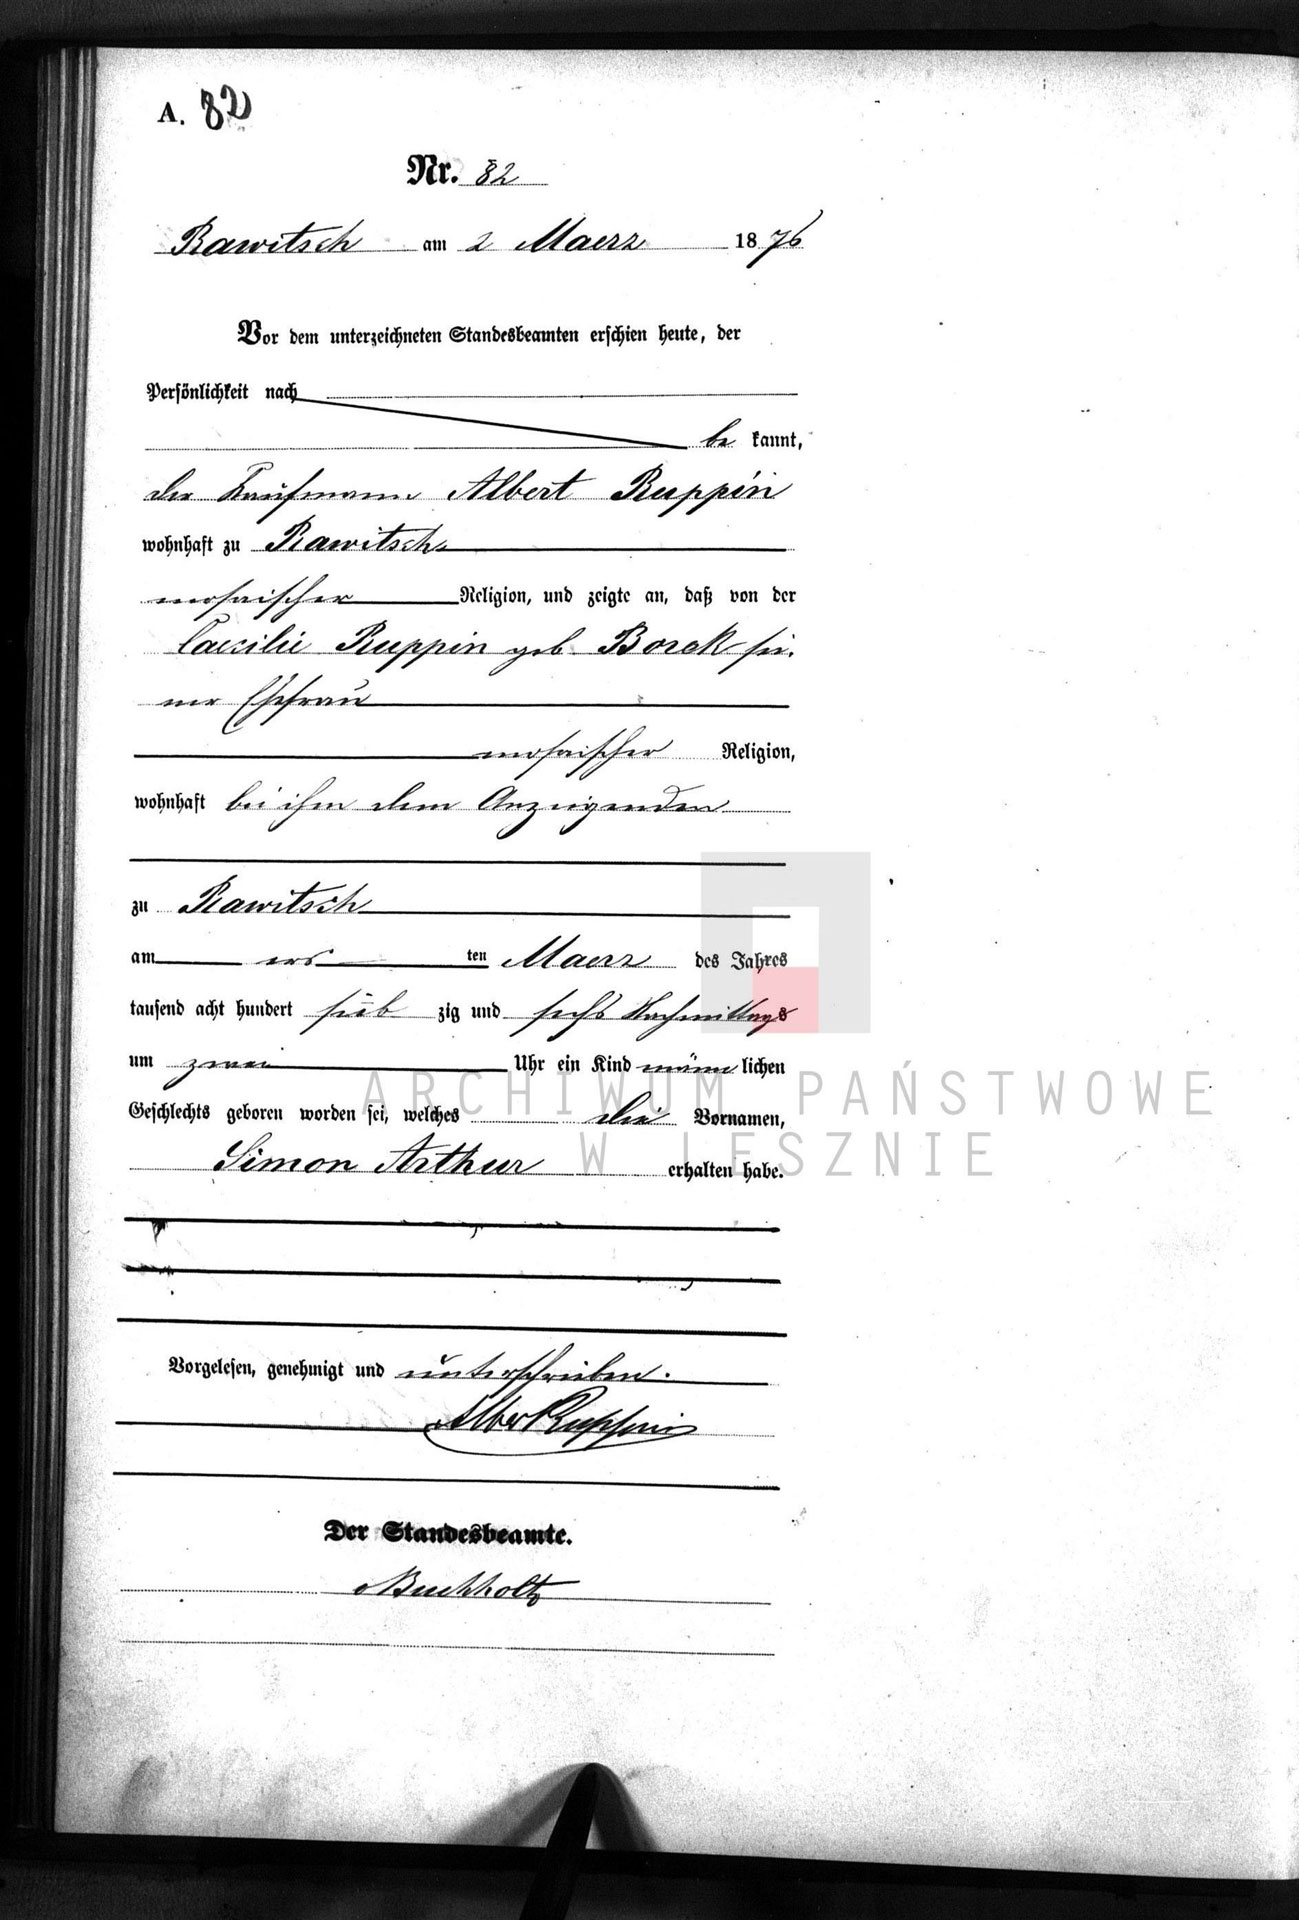 A. 82
Nr. 82
Rawitsch am 2 Maerz 1876
Vor dem unterzeichneten Standesbeamten erschien heute, der
Persönlichkeit nach
be kannt,
der Kaufmann Albert Ruppin
wohnhaft zu Rawitsch
mosaischer Religion, und zeigte an, daß von der
Caecilie Ruppin geb. Borck sei-
ner Ehefrau
mosaischer Religion,
wohnhaft bei ihm dem Anzeigenden
zu Rawitsch
am ers ten Maerz des Jahres
tausend acht hundert sieb zig und sechs Nachmittags
um zwei Uhr ein Kind männ lichen
Geschlechts geboren worden sei, welches die Vornamen,
Simon Arthur erhalten habe.
Vorgelesen, genehmigt und unterschrieben.
Albert Ruppin
Der Standesbeamte.
Buchholtz
ARCHIWUM PAŃSTWOWE
W LESZNIE